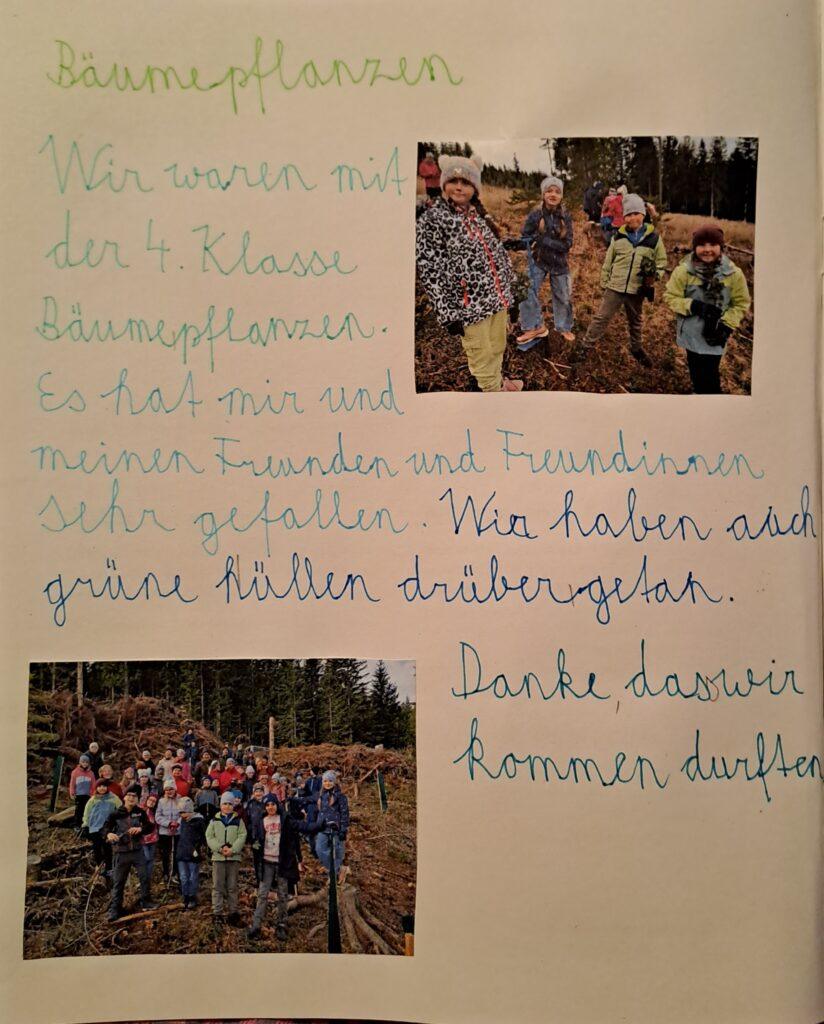 Bäumepflanzen
Wir waren mit
der 4. Klasse
Bäumepflanzen.
Es hat mir und
meinen Freunden und Freundinnen
sehr gefallen. Wir haben auch
grüne hüllen drüber getan.
Danke, das wir
kommen durften